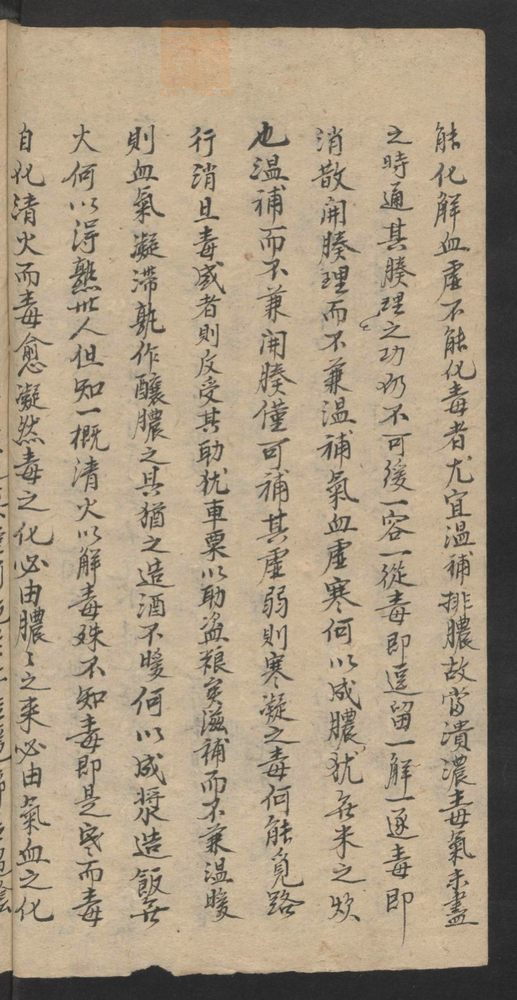 能化解血虛不能化毒者尤宜溫補排膿故當潰濃毒氣未盡
之時通其腠理之功仍不可緩一容一從毒即逗留一解一逐毒即
消散開腠理而不兼溫補氣血虛寒何以成膿犹無米之炊
也溫補而不兼開腠僅可補其虛弱則寒凝之毒何能覓路
行消且毒盛者則反受其助犹車粟以助盜粮矣滋補而不兼溫暖
則血氣凝滯孰作釀膿之具猶之造酒不暖何以成漿造飯無
火何以得熟世人但知一概清火以解毒殊不知毒即是寒而毒
自化清火而毒愈凝然毒之化必由膿〻之来必由氣血之化